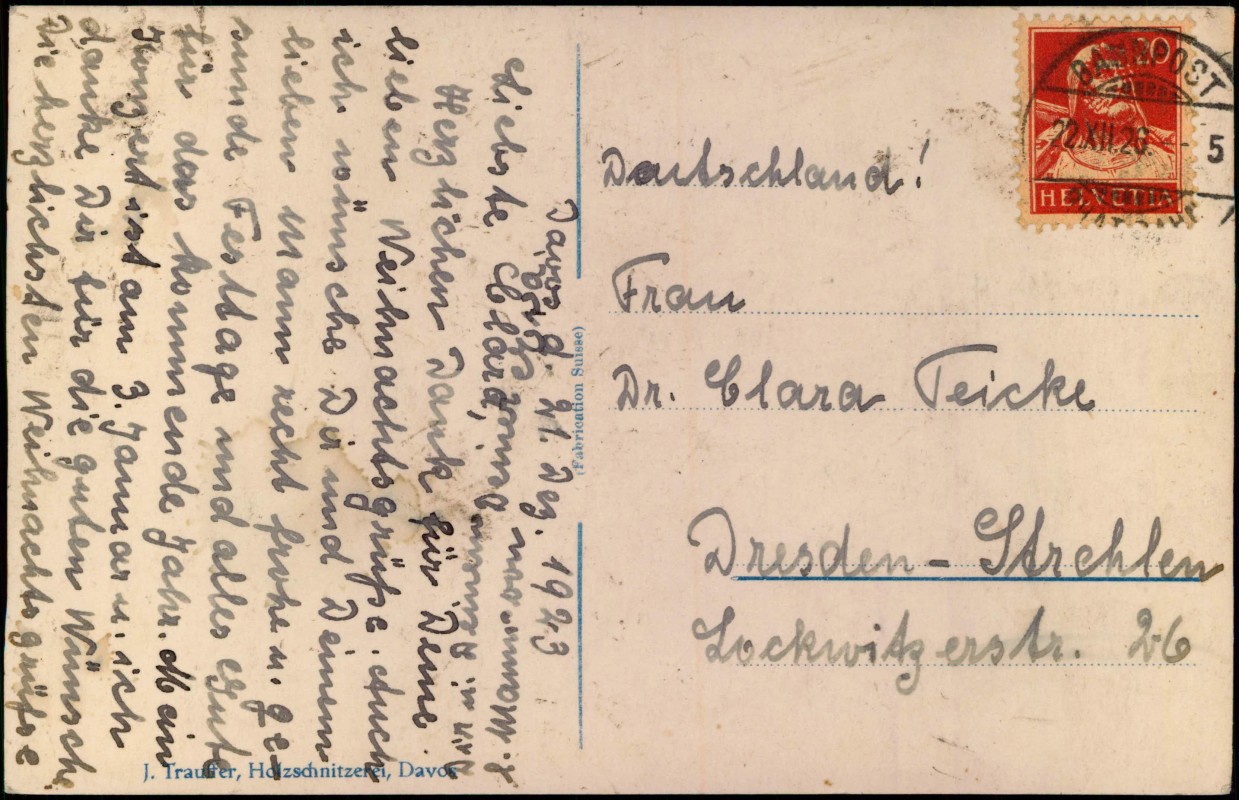 Davos d. 21. Dez. 1923
Liebste Clara,
Herzlichen Dank für Deine
lieben Weihnachtsgrüße. Auch
ich wünsche Dir und Deinem
lieben Mann recht frohe u. ge-
sunde Festtage und alles Gute
für das kommende Jahr. Mein
Konzert ist am 3. Januar u. ich
danke Dir für die guten Wünsche.
Die herzlichsten Weihnachtsgrüße
J. Trauffer, Holzschnitzerei, Davos
(Fabrication Suisse)
20
HELVETIA
BAHNPOST
22.XII.2
5
Deutschland!
Frau
Dr. Clara Teicke
Dresden - Strehlen
Lockwitzerstr. 26